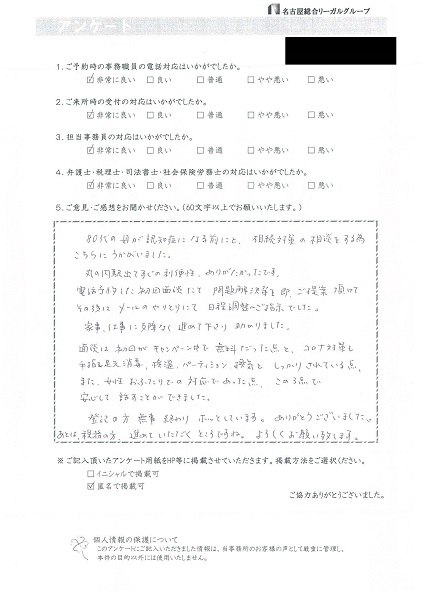 名古屋総合リーガルグループ
アンケート
1. ご予約時の事務職員の電話対応はいかがでしたか。
☑非常に良い □良い □普通 □やや悪い □悪い
2. ご来所時の受付の対応はいかがでしたか。
☑非常に良い □良い □普通 □やや悪い □悪い
3. 担当事務員の対応はいかがでしたか。
☑非常に良い □良い □普通 □やや悪い □悪い
4. 弁護士・税理士・司法書士・社会保険労務士の対応はいかがでしたか。
☑非常に良い □良い □普通 □やや悪い □悪い
5. ご意見・ご感想をお聞かせください。(60文字以上でお願いいたします。)
80代の母が認知症になる前にと、相続対策の相談をする為
こちらにうかがいました。
丸の内駅出てすぐの利便性、ありがたかったです。
電話予約した初回面談にて 問題解決策を即、ご提案 頂けて
その後は メールのやりとりにて 日程調整やご指示でした。
家事、仕事に支障なく 進めて下さり 助かりました。
面談は 初回がキャンペーン中で 無料だった点と、コロナ対策も
手指・足元消毒、検温、パーティション 換気と しっかりされている点、
また、女性 おふたりでの 対応であった点、この3点で
安心して 話すことができました。
登記の方 無事 終わり ホッとしています。ありがとうございました。
あとは、税務の方、進めていただくところですね。よろしくお願い致します。
※ ご記入頂いたアンケート用紙をHP等に掲載させていただきます。掲載方法をご選択ください。
□イニシャルで掲載可
☑匿名で掲載可
ご協力ありがとうございました。
個人情報の保護について
このアンケートにご記入いただきました情報は、当事務所のお客様の声として厳重に管理し、
本件の目的以外には使用いたしません。